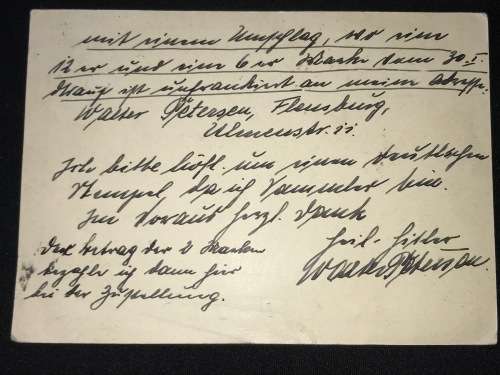 mit einem Umschlag, wo eine
12er und eine 6er Marke vom 30.I.
drauf ist unfrankiert an meine Adresse:
Walter Petersen, Flensburg,
Ulmenstr. 11.
Ich bitte höfl. um einen deutlichen
Stempel, da ich Sammler bin.
Im Voraus herzl. Dank
Heil-Hitler
Walter Petersen.
Der Betrag der 2 Marken
bezahle ich dann hier
bei der Zustellung.